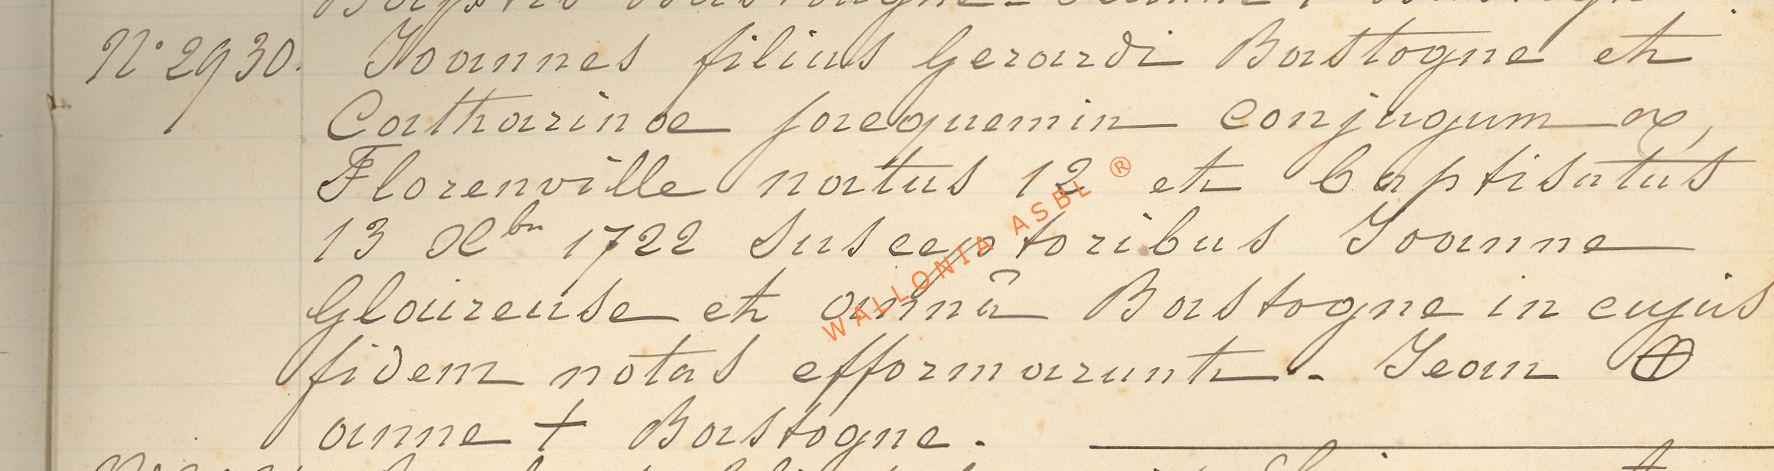 N° 2930. Joannes filius Gerardi Bastogne et
Catharinae jacquemin conjugum ex,
Florenville natus 12 et baptisatus
13 Xbr 1722 Susceptoribus Joanne
Glaireuse et annâ Bastogne in cujus
fidem notas efformarunt. Jean ⊕
anne + Bastogne.
WALLONIA ASBL ®